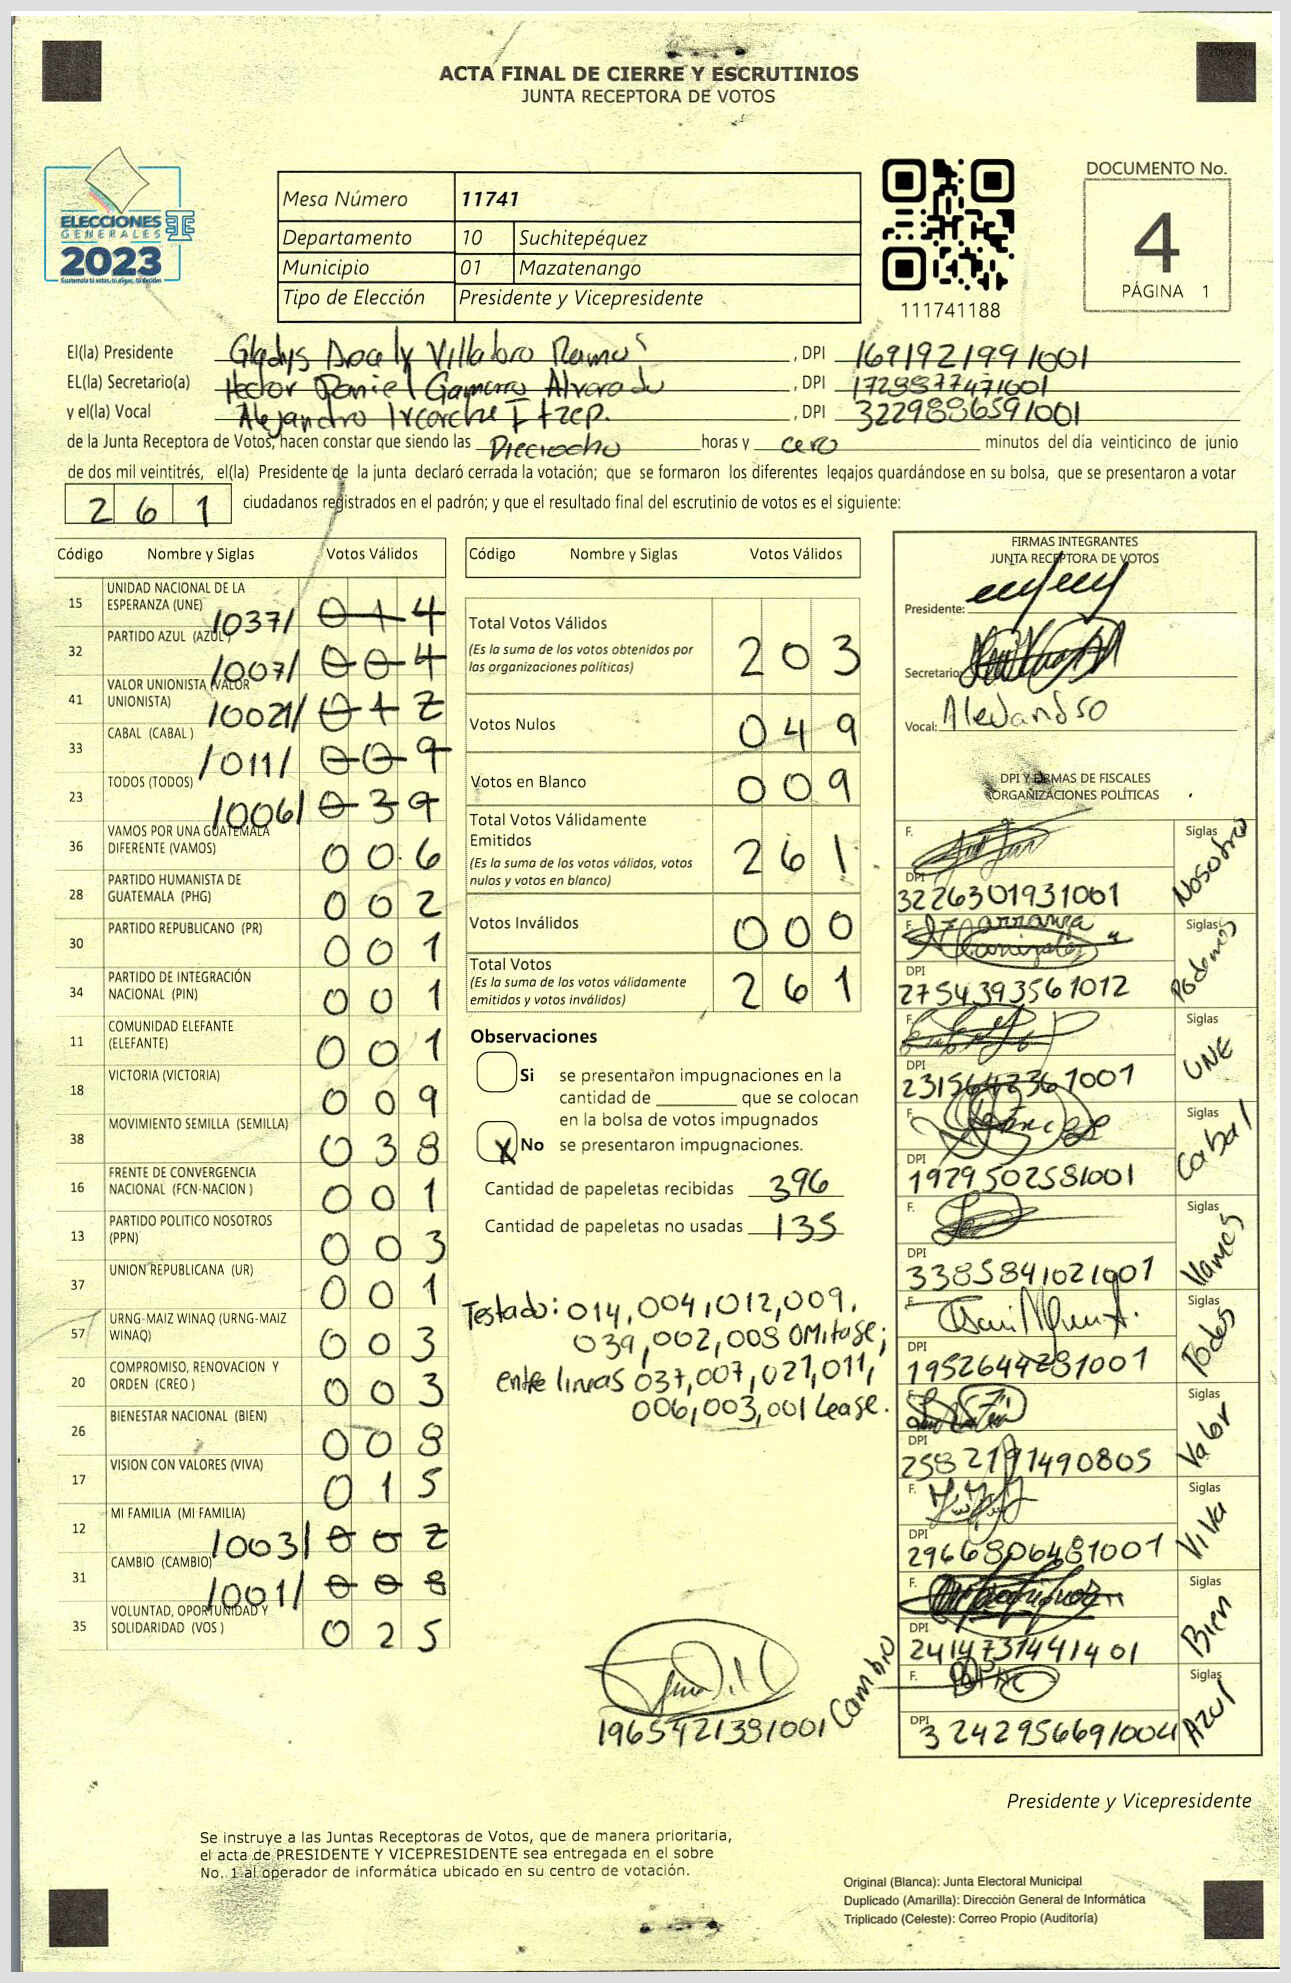 ACTA FINAL DE CIERRE Y ESCRUTINIOS
JUNTA RECEPTORA DE VOTOS
ELECCIONES
GENERALES
2023
Mesa Número 11741
Departamento 10 Suchitepéquez
Municipio 01 Mazatenango
Tipo de Elección Presidente y Vicepresidente
111741188
DOCUMENTO No.
4
PÁGINA 1
El(la) Presidente Gladys Villatoro Ramos, DPI 1691921991001
EL(la) Secretario(a) Hector Daniel Gamarro Alvarado, DPI 1729877471001
y el(la) Vocal Alejandro Itzep., DPI 3229886591001
de la Junta Receptora de Votos, hacen constar que siendo las Dieciocho horas y cero minutos del día veinticinco de junio
de dos mil veintitrés, el(la) Presidente de la junta declaró cerrada la votación; que se formaron los diferentes legajos guardándose en su bolsa, que se presentaron a votar
261 ciudadanos registrados en el padrón; y que el resultado final del escrutinio de votos es el siguiente:
Código Nombre y Siglas Votos Válidos
15 UNIDAD NACIONAL DE LA ESPERANZA (UNE) /037/ 014
32 PARTIDO AZUL (AZUL) /007/ 004
41 VALOR UNIONISTA (VALOR UNIONISTA) /0021/ 012
33 CABAL (CABAL) /011/ 009
23 TODOS (TODOS) /006/ 039
36 VAMOS POR UNA GUATEMALA DIFERENTE (VAMOS) 006
28 PARTIDO HUMANISTA DE GUATEMALA (PHG) 002
30 PARTIDO REPUBLICANO (PR) 001
34 PARTIDO DE INTEGRACIÓN NACIONAL (PIN) 001
11 COMUNIDAD ELEFANTE (ELEFANTE) 001
18 VICTORIA (VICTORIA) 009
38 MOVIMIENTO SEMILLA (SEMILLA) 038
16 FRENTE DE CONVERGENCIA NACIONAL (FCN-NACION) 001
13 PARTIDO POLITICO NOSOTROS (PPN) 003
37 UNION REPUBLICANA (UR) 001
57 URNG-MAIZ WINAQ (URNG-MAIZ WINAQ) 003
20 COMPROMISO, RENOVACION Y ORDEN (CREO) 003
26 BIENESTAR NACIONAL (BIEN) 008
17 VISION CON VALORES (VIVA) 015
12 MI FAMILIA (MI FAMILIA) /003/ 002
31 CAMBIO (CAMBIO) /001/ 008
35 VOLUNTAD, OPORTUNIDAD Y SOLIDARIDAD (VOS) 025
Código Nombre y Siglas Votos Válidos
Total Votos Válidos 203
(Es la suma de los votos obtenidos por
las organizaciones políticas)
Votos Nulos 049
Votos en Blanco 009
Total Votos Válidamente
Emitidos 261
(Es la suma de los votos válidos, votos
nulos y votos en blanco)
Votos Inválidos 000
Total Votos 261
(Es la suma de los votos válidamente
emitidos y votos inválidos)
Observaciones
Si se presentaron impugnaciones en la
cantidad de ________ que se colocan
en la bolsa de votos impugnados
X No se presentaron impugnaciones.
Cantidad de papeletas recibidas 396
Cantidad de papeletas no usadas 135
Testado: 014,004,012,009,
039,002,008 OMitase;
entre lineas 037,007,021,011,
006,003,001 Lease.
1965421381001
Cambio
FIRMAS INTEGRANTES
JUNTA RECEPTORA DE VOTOS
Presidente:
Secretario:
Vocal: Alejandro
DPI Y FIRMAS DE FISCALES
ORGANIZACIONES POLÍTICAS
F. Siglas Nosotros
DPI 3226301931001
F. Siglas Podemos
DPI 2754393561012
F. Siglas UNE
DPI 2315642361001
F. Siglas Cabal
DPI 1979502581001
F. Siglas Vamos
DPI 3385841021001
F. Siglas Todos
DPI 1952644281001
F. Siglas Valor
DPI 2582191490805
F. Siglas ViVa
DPI 2966806481001
F. Siglas Bien
DPI 2414731441401
F. Siglas Azul
DPI 3242956691004
Presidente y Vicepresidente
Se instruye a las Juntas Receptoras de Votos, que de manera prioritaria,
el acta de PRESIDENTE Y VICEPRESIDENTE sea entregada en el sobre
No. 1 al operador de informática ubicado en su centro de votación.
Original (Blanca): Junta Electoral Municipal
Duplicado (Amarilla): Dirección General de Informática
Triplicado (Celeste): Correo Propio (Auditoría)